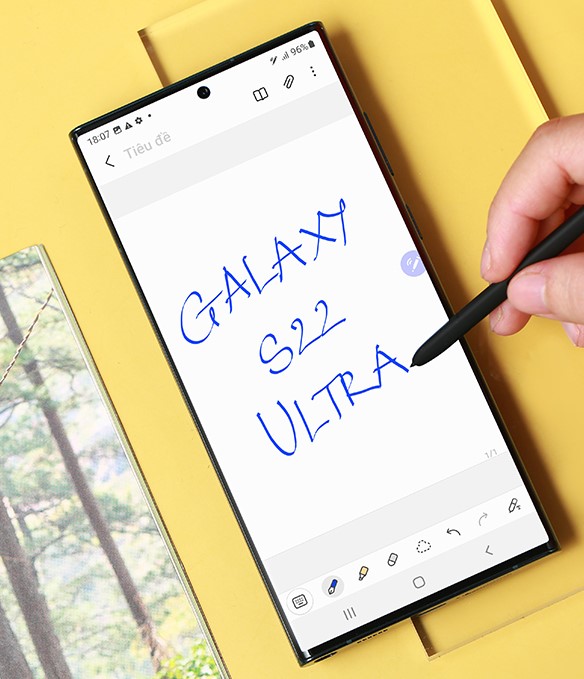 18:07
96%
Tiêu đề
GALAXY
S22
ULTRA
1/1